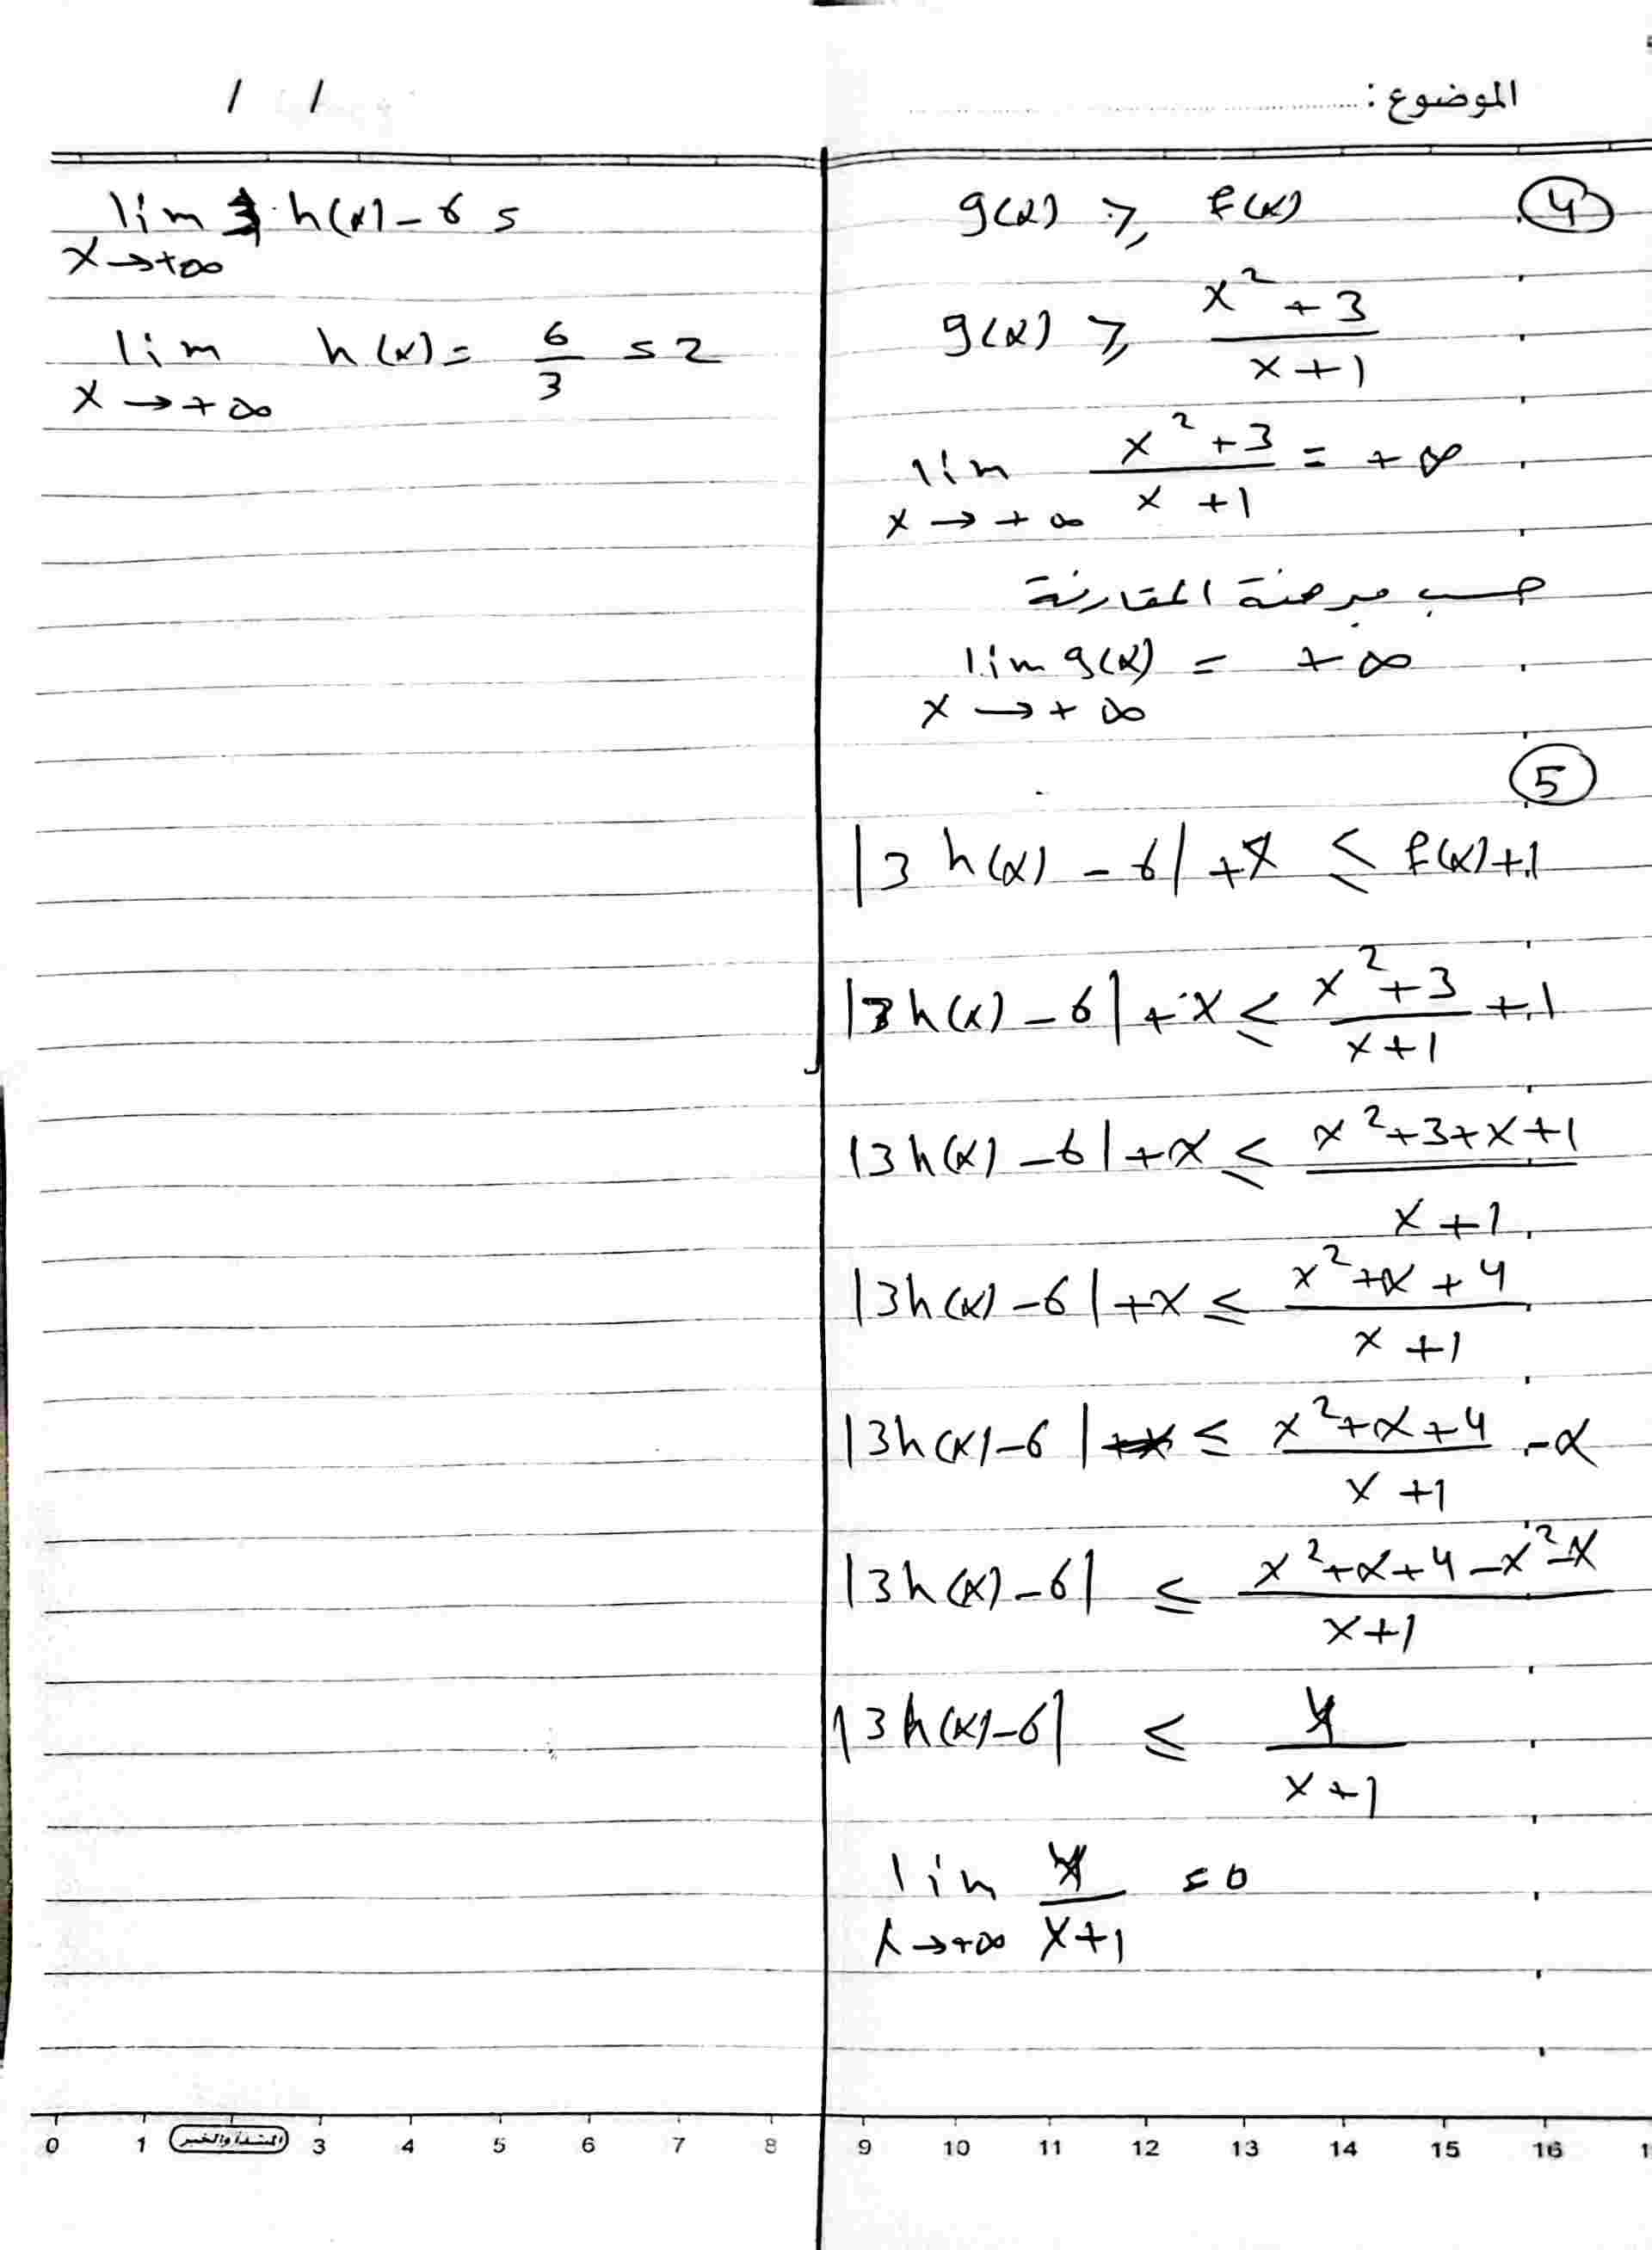 الموضوع :
/ /
④
g(x) ≥ f(x)
g(x) ≥ (x² + 3)/(x + 1)
lim x → +∞ (x² + 3)/(x + 1) = +∞
حسب مبرهنة المقارنة
lim g(x) = +∞
x → +∞
⑤
|3 h(x) - 6| + x ≤ f(x) + 1
|3 h(x) - 6| + x ≤ (x² + 3)/(x + 1) + 1
|3 h(x) - 6| + x ≤ (x² + 3 + x + 1)/(x + 1)
|3 h(x) - 6| + x ≤ (x² + x + 4)/(x + 1)
|3 h(x) - 6| ≤ (x² + x + 4)/(x + 1) - x
|3 h(x) - 6| ≤ (x² + x + 4 - x² - x)/(x + 1)
|3 h(x) - 6| ≤ 4/(x + 1)
lim x → +∞ 4/(x + 1) = 0
lim 3 h(x) - 6 =
x → +∞
lim h(x) = 6/3 = 2
x → +∞
0 1 المبتدأ والخبر 3 4 5 6 7 8 9 10 11 12 13 14 15 16